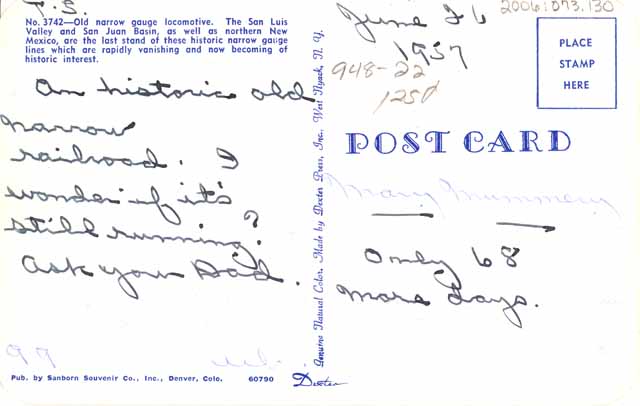 P.S.
No. 3742—Old narrow gauge locomotive. The San Luis
Valley and San Juan Basin, as well as northern New
Mexico, are the last stand of these historic narrow gauge
lines which are rapidly vanishing and now becoming of
historic interest.
An historic old
narrow
railroad. I
wonder if it's
still running?
Ask your Dad.
99
Pub. by Sanborn Souvenir Co., Inc., Denver, Colo. 60790
Genuine Natural Color. Made by Dexter Press, Inc. West Nyack, N. Y.
Dexter
June 26
1957
2006.073.130
948-22
125¢
PLACE
STAMP
HERE
POST CARD
Mary Mummery
Only 68
more days.